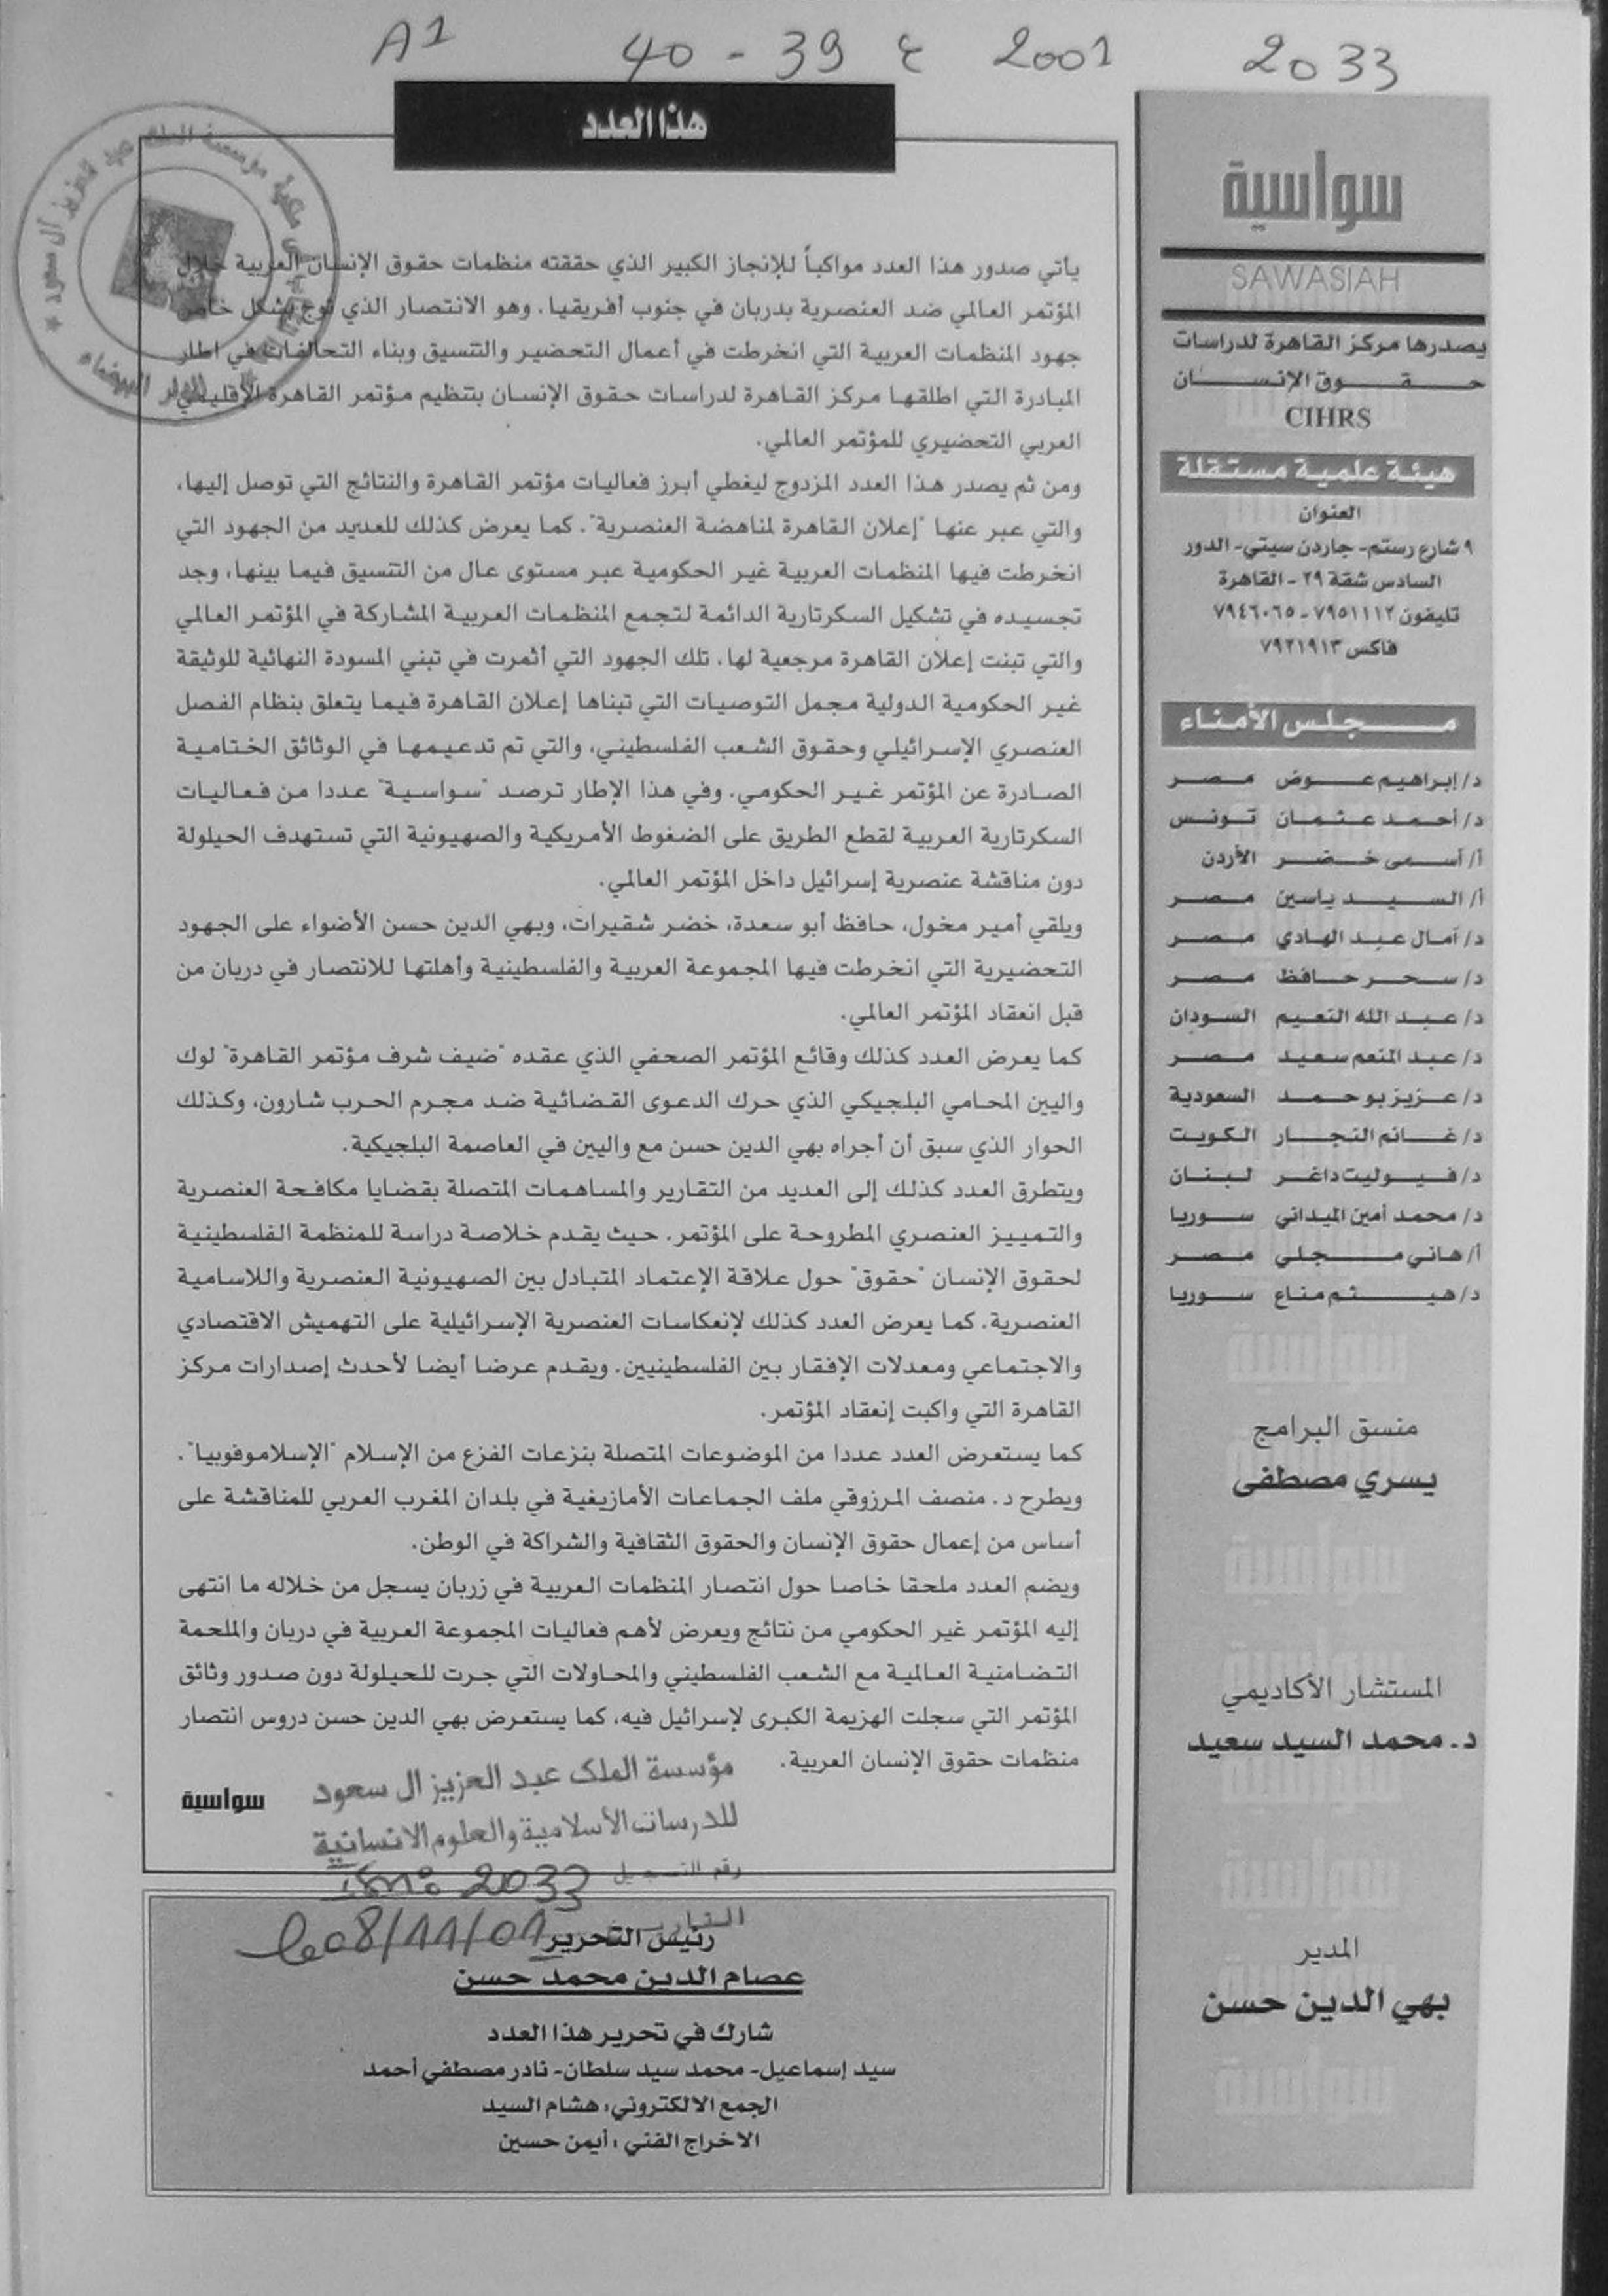 2033 2001 ع 39 - 40 A1
سواسية
SAWASIAH
يصدرها مركز القاهرة لدراسات
حقوق الإنسان
CIHRS
هيئة علمية مستقلة
العنوان
٩ شارع رستم- جاردن سيتي- الدور
السادس شقة ٢٩ - القاهرة
تليفون ٧٩٥١١١٢ - ٧٩٤٦٠٦٥
فاكس ٧٩٢١٩١٣
مجلس الأمناء
د/ إبراهيم عوض مصر
د/ أحمد عثمان تونس
أ/ أسمى خضر الأردن
أ/ السيد ياسين مصر
د/ آمال عبد الهادي مصر
د/ سحر حافظ مصر
د/ عبد الله النعيم السودان
د/ عبد المنعم سعيد مصر
د/ عزيز بو حمد السعودية
د/ غانم النجار الكويت
د/ فيوليت داغر لبنان
د/ محمد أمين الميداني سوريا
أ/ هاني مجلي مصر
د/ هيثم مناع سوريا
منسق البرامج
يسري مصطفى
المستشار الأكاديمي
د. محمد السيد سعيد
المدير
بهي الدين حسن
هذا العدد
يأتي صدور هذا العدد مواكباً للإنجاز الكبير الذي حققته منظمات حقوق الإنسان العربية خلال
المؤتمر العالمي ضد العنصرية بدربان في جنوب أفريقيا. وهو الانتصار الذي توج بشكل خاص
جهود المنظمات العربية التي انخرطت في أعمال التحضير والتنسيق وبناء التحالفات في اطار
المبادرة التي اطلقها مركز القاهرة لدراسات حقوق الإنسان بتنظيم مؤتمر القاهرة الإقليمي
العربي التحضيري للمؤتمر العالمي.
ومن ثم يصدر هذا العدد المزدوج ليغطي أبرز فعاليات مؤتمر القاهرة والنتائج التي توصل إليها،
والتي عبر عنها "إعلان القاهرة لمناهضة العنصرية". كما يعرض كذلك للعديد من الجهود التي
انخرطت فيها المنظمات العربية غير الحكومية عبر مستوى عال من التنسيق فيما بينها، وجد
تجسيده في تشكيل السكرتارية الدائمة لتجمع المنظمات العربية المشاركة في المؤتمر العالمي
والتي تبنت إعلان القاهرة مرجعية لها. تلك الجهود التي أثمرت في تبني المسودة النهائية للوثيقة
غير الحكومية الدولية مجمل التوصيات التي تبناها إعلان القاهرة فيما يتعلق بنظام الفصل
العنصري الإسرائيلي وحقوق الشعب الفلسطيني، والتي تم تدعيمها في الوثائق الختامية
الصادرة عن المؤتمر غير الحكومي. وفي هذا الإطار ترصد "سواسية" عددا من فعاليات
السكرتارية العربية لقطع الطريق على الضغوط الأمريكية والصهيونية التي تستهدف الحيلولة
دون مناقشة عنصرية إسرائيل داخل المؤتمر العالمي.
ويلقي أمير مخول، حافظ أبو سعدة، خضر شقيرات، وبهي الدين حسن الأضواء على الجهود
التحضيرية التي انخرطت فيها المجموعة العربية والفلسطينية وأهلتها للانتصار في دربان من
قبل انعقاد المؤتمر العالمي.
كما يعرض العدد كذلك وقائع المؤتمر الصحفي الذي عقده "ضيف شرف مؤتمر القاهرة" لوك
واليين المحامي البلجيكي الذي حرك الدعوى القضائية ضد مجرم الحرب شارون، وكذلك
الحوار الذي سبق أن أجراه بهي الدين حسن مع واليين في العاصمة البلجيكية.
ويتطرق العدد كذلك إلى العديد من التقارير والمساهمات المتصلة بقضايا مكافحة العنصرية
والتمييز العنصري المطروحة على المؤتمر. حيث يقدم خلاصة دراسة للمنظمة الفلسطينية
لحقوق الإنسان "حقوق" حول علاقة الإعتماد المتبادل بين الصهيونية العنصرية واللاسامية
العنصرية. كما يعرض العدد كذلك لإنعكاسات العنصرية الإسرائيلية على التهميش الاقتصادي
والاجتماعي ومعدلات الإفقار بين الفلسطينيين. ويقدم عرضا أيضا لأحدث إصدارات مركز
القاهرة التي واكبت إنعقاد المؤتمر.
كما يستعرض العدد عددا من الموضوعات المتصلة بنزعات الفزع من الإسلام "الإسلاموفوبيا".
ويطرح د. منصف المرزوقي ملف الجماعات الأمازيغية في بلدان المغرب العربي للمناقشة على
أساس من إعمال حقوق الإنسان والحقوق الثقافية والشراكة في الوطن.
ويضم العدد ملحقا خاصا حول انتصار المنظمات العربية في زربان يسجل من خلاله ما انتهى
إليه المؤتمر غير الحكومي من نتائج ويعرض لأهم فعاليات المجموعة العربية في دربان والملحمة
التضامنية العالمية مع الشعب الفلسطيني والمحاولات التي جرت للحيلولة دون صدور وثائق
المؤتمر التي سجلت الهزيمة الكبرى لإسرائيل فيه، كما يستعرض بهي الدين حسن دروس انتصار
منظمات حقوق الإنسان العربية.
سواسية
مؤسسة الملك عبد العزيز ال سعود
للدرسات الأسلامية والعلوم الانسانية
رقم التسجيل 2033
التاريخ 08/11/01
رئيس التحرير
عصام الدين محمد حسن
شارك في تحرير هذا العدد
سيد إسماعيل- محمد سيد سلطان- نادر مصطفي أحمد
الجمع الالكتروني: هشام السيد
الاخراج الفني : أيمن حسين